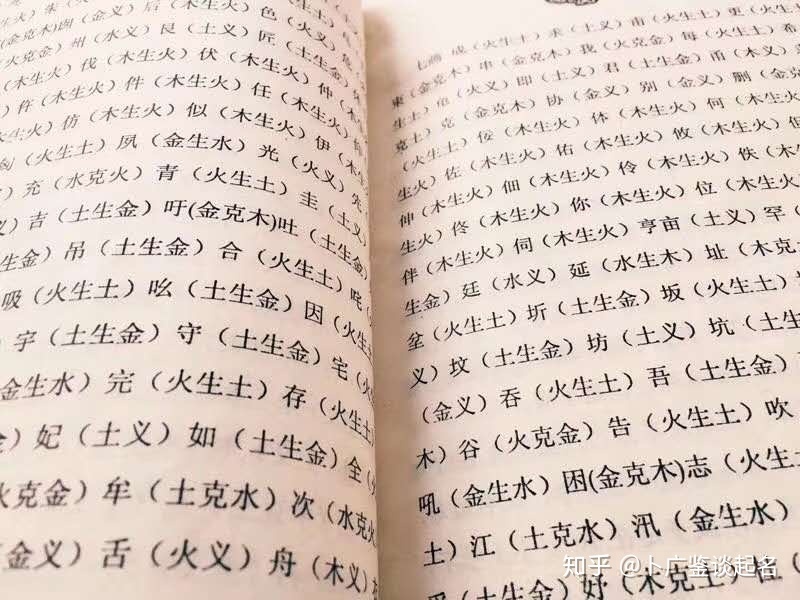 (金克木)囪(金义)后(木生火)色
火克金)州(水义)艮(土义)匠
(木生火)伐(木生火)伏(木生火)仲
)件(木生火)任(木生火)
(木生火)仿(木生火)似(木生火)伊
(火生土)夙(金生水)光(火义)先
)充(水克火)青(火生土)圭(土义)
义)吉(土生金)吁(金克木)吐(土生金)
生金)吊(土生金)合(火生土)咤
吸(火生土)吆(土生金)因(火生
)宇(土生金)守(土生金)宅
金生水)完(火生土)存(火生土)
)妃(土义)如(土生金)全(
火克金)牟(土克水)次(水克火
(金义)舌(火义)舟(木义)
七画 成(火生土)末(土义)甫(火生土)更(火生
東(金克木)串(金克木)我(火克金)每(火生土)希
生土)皂(火义)即(土义)君(土生金)甬(木义)
克土)克(金克木)协(金义)别(金义)删(金克
(火生土)佞(木生火)体(木生火)何(木生火)
生火)佐(木生火)佑(木生火)攸(木生火)但
伸(木生火)佃(木生火)伶(木生火)佚(木生火)
生火)佟(木生火)你(木生火)位(木生火)
伴(木生火)伺(木生火)亨亩(土义)罕(
生金)廷(水义)延(水生木)址(木克
坌(火生土)圻(土生金)坂(火生土)
义)坟(土生金)坊(土义)坑(土生
(金义)吞(火生土)吾(土生金)
木)谷(火克金)告(火生土)吹
吼(金生水)困(金克木)志(火生
土)江(土克水)汛(金生水)
(土生金)妤(木克土)
知乎 @卜广鉴谈起名